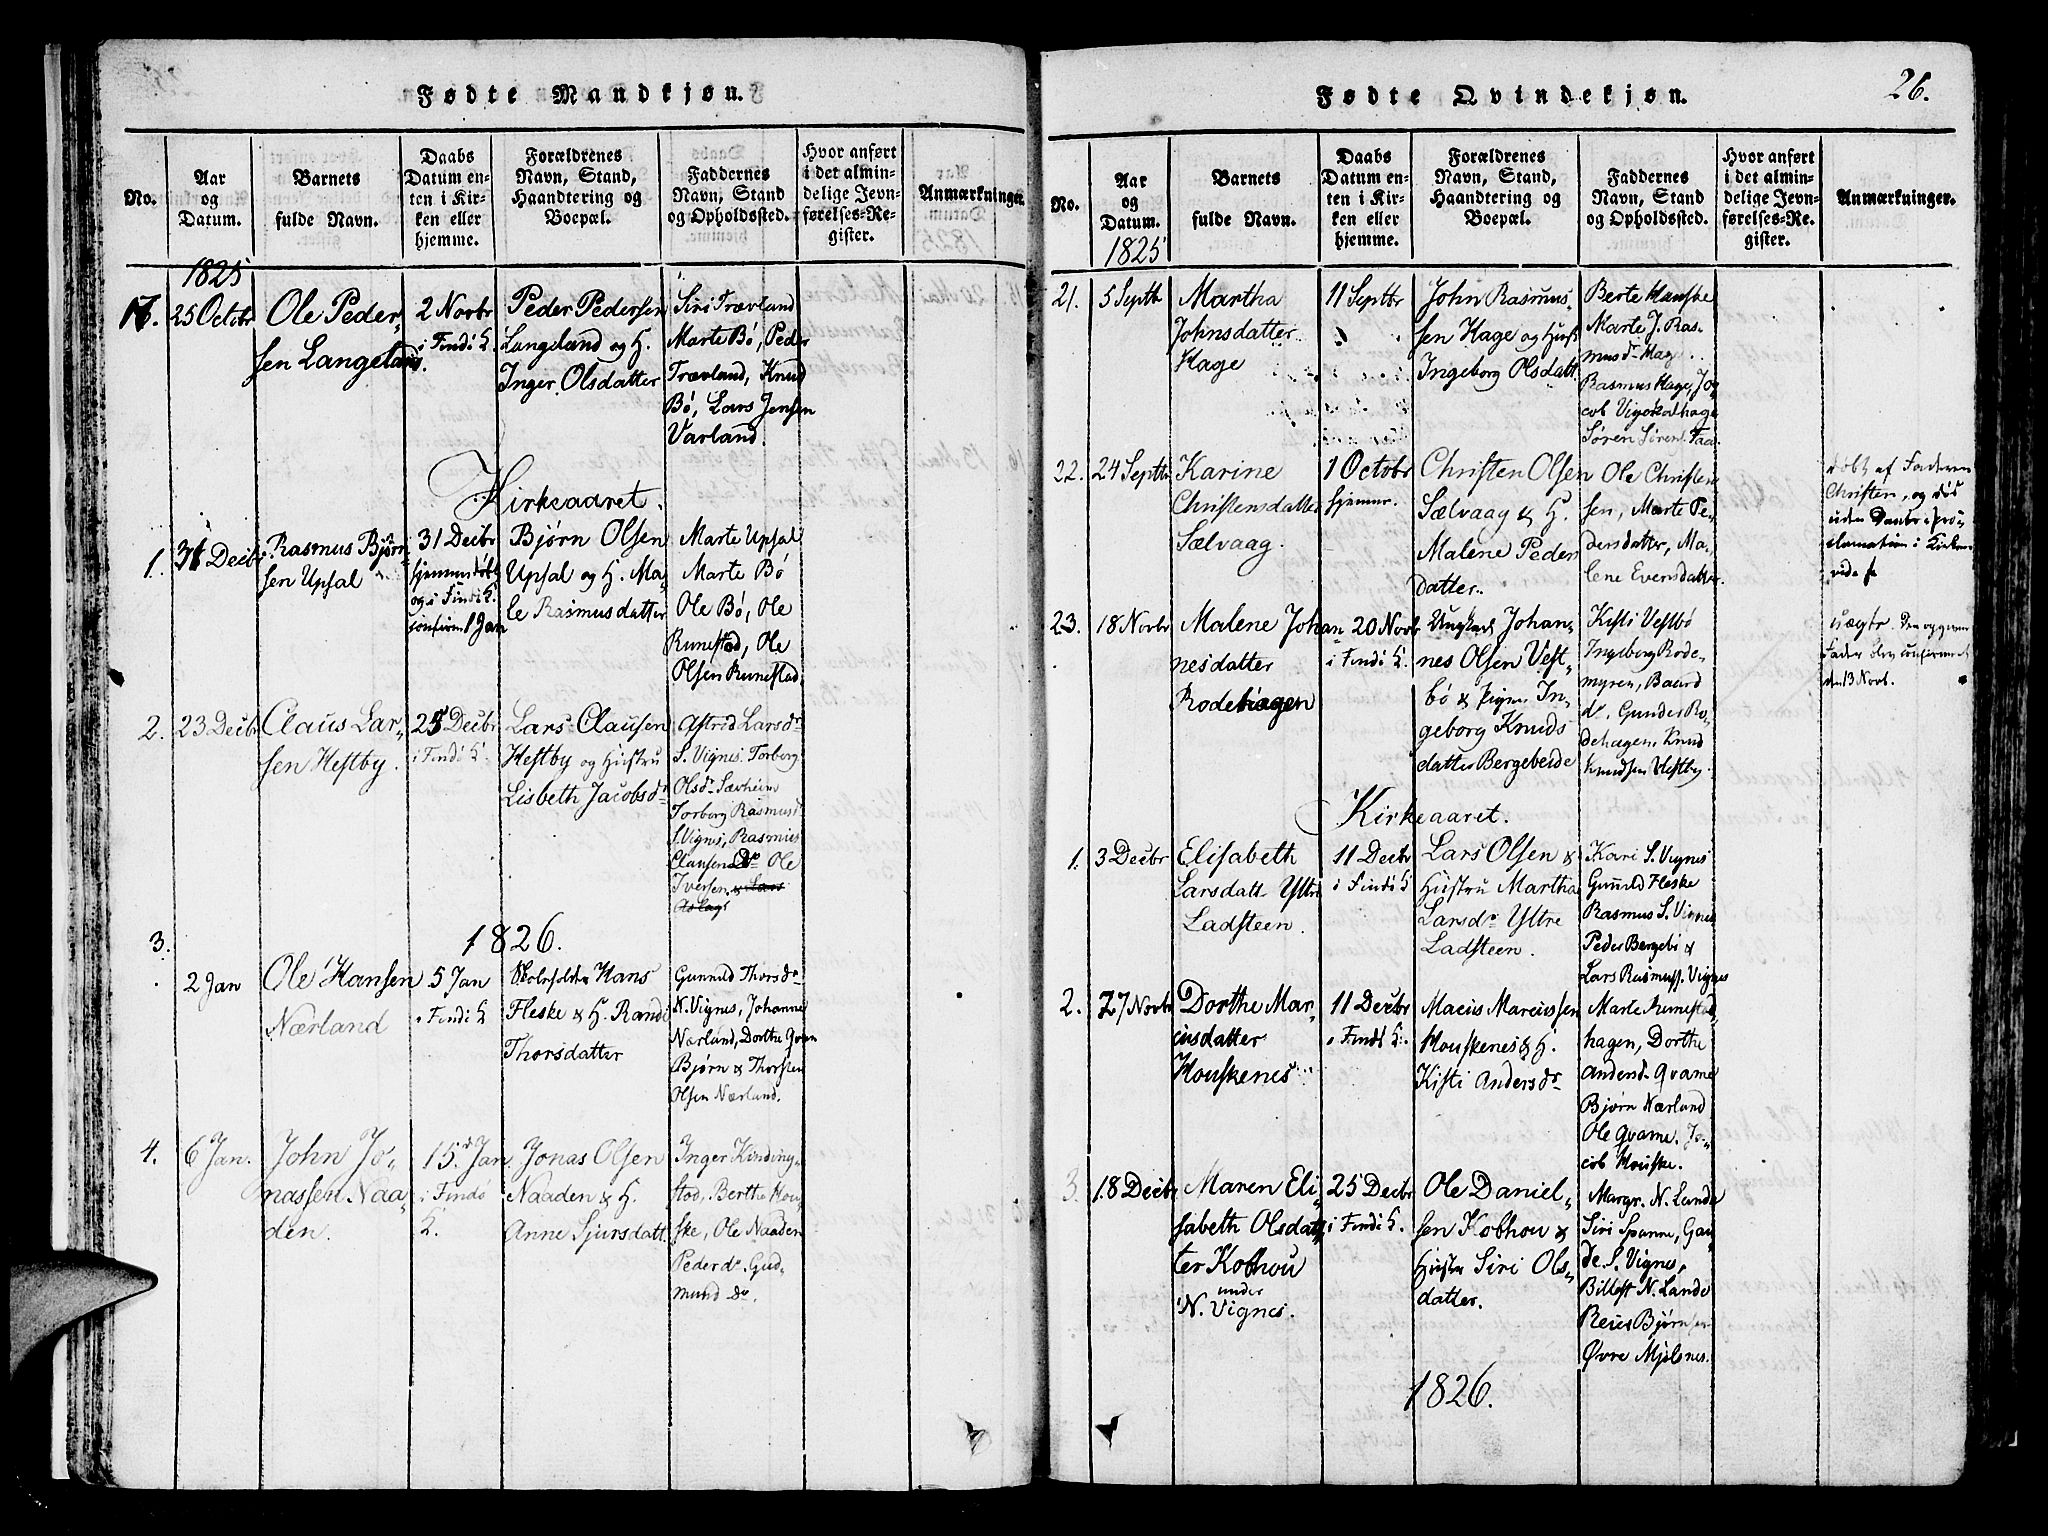 Fødte Mandkjøn.
No.
Aar
og
Datum.
Barnets
fulde Navn.
Daabs
Datum en-
ten i Kir-
ken eller
hjemme.
Forældrenes
Navn, Stand,
Haandtering og
Boepæl.
Faddernes
Navn, Stand
og Opholdssted.
Hvor anført
i det almin-
delige Jevn-
førelses-Re-
gister.
Anmærkninger.
1825
25 Octobr
Ole Peder-
sen Langeland.
2 Novbr
i Findö K.
Peder Pedersen
Langeland og H.
Inger Olsdatter
Siri Trævland
Marte Bö, Peder
Trævland, Knud
Bö, Lars Jensen
Varland.
Kirkeaaret.
1.
31 Decbr
Rasmus Bjørn-
sen Upsal
31 Decbr
hjemmedöbt
og i Findö K.
confirm 1 Jan
Bjørn Olsen
Upsal og H. Ma-
le Rasmusdatter
Marte Upsal
Marte Bö
Ole Bö, Ole
Runestad, Ole
Olsen Runestad.
2.
23 Decbr
Claus Lar-
sen Hestby.
25 Decbr
i Findö K.
Lars Clausen
Hestby og Hustru
Lisbeth Jacobsdr
Astrid Larsdr
S. Vignes. Torborg
Olsdr Særheim
Torborg Rasmusd
S. Vignes, Rasmus
Clausen Do Ole
Iversen & Lars
Aslag
1826.
3.
2 Jan
Ole Hansen
Nærland
5 Jan
i Findö K
Skoleholder Hans
Fleske & H. Randi
Thorsdatter
Gunnild Thorsdr
N. Vignes, Johanne
Nærland, Dorthe Qvam
Bjørn & Thorsten
Olsen Nærland.
4.
6 Jan.
John Jo-
nassen Naa-
den.
15. Jan
i Findö
K.
Jonas Olsen
Naaden & H.
Anne Sjursdatt.
Inger Kindving-
stad, Berthe Hou-
ske, Ole Naaden
Peder do. Gud-
mund Do.
Fødte Qvindekjøn.
26.
No.
Aar
og
Datum.
Barnets
fulde Navn.
Daabs
Datum en-
ten i Kir-
ken eller
hjemme.
Forældrenes
Navn, Stand,
Haandtering og
Boepæl.
Faddernes
Navn, Stand
og Opholdssted.
Hvor anført
i det almin-
delige Jevn-
førelses-Re-
gister.
Anmærkninger.
1825
21.
5 Septbr
Martha
Johnsdatter
Hage
11 Septbr
John Rasmus-
sen Hage og Hust
Ingeborg Olsdatt
Berte Houske
Marte J. Ras-
musdr Hage
Rasmus Hage, Ja-
cob Vigs
Søren Sørens.
22.
24 Septbr
Karine
Christensdatter
Sælvaag.
1 Octobr
hjemme.
Christen Olsen
Sælvaag & H.
Malene Peders
Datter.
Ole Christen-
sen, Marte Pe-
dersdatter, Ma-
lene Evensdatter
döbt af Faderen
Christen, og död
uden Daabs pro-
clamation i Kirken
23.
18 Novbr
Malene Johan
nesdatter
Rodehagen
20 Novbr
i Findö K.
Ungkarl Johan-
nes Olsen Vest-
bö & Pigen In-
geborg Knuds
datter Bergebeide
Kisti Vestbö
Ingeborg Rode-
myren, Baard
do. Gunder Ro-
dehagen. Knud
Knudsen Vestby.
uægte. Den opgivne
Fader blev confirmeret
den 13 Novb.
Kirkeaaret.
1.
3 Decbr
Elisabeth
Larsdatt. Ystre
Ladsteen.
11 Decbr
i Findö K
Lars Olsen &
Hustru Martha
Larsdr Ystre
Ladsteen.
Kari S. Vignes
Gunild Fleske
Rasmus S. Vignes
Peder Bergebi &
Lars Rasmuss. Vignes
2.
27 Novbr
Dorthe Mar-
cusdatter
Houskenes
11 Decbr
i Findö K.
Macus Marcussen
Houskenes & H.
Kisti Andersdr
Marte Runestad-
hagen, Dorthe
Andersd. Qvame
Bjørn Nærland
Ole Qvame. Ja-
cob Houske.
3.
18 Decbr
Maren Eli-
sabeth Olsdat-
ter Kobhou
under
N. Vignes.
25 Decbr
i Findö K.
Ole Daniel-
sen Kobhou &
Hustr Siri Ols-
datter.
Margr. N. Lande
Siri Spanne, Gau-
de. S. Vignes,
Billest N. Lande
Reies Bjørnsen
Øvre Mjølsnes.
1826.